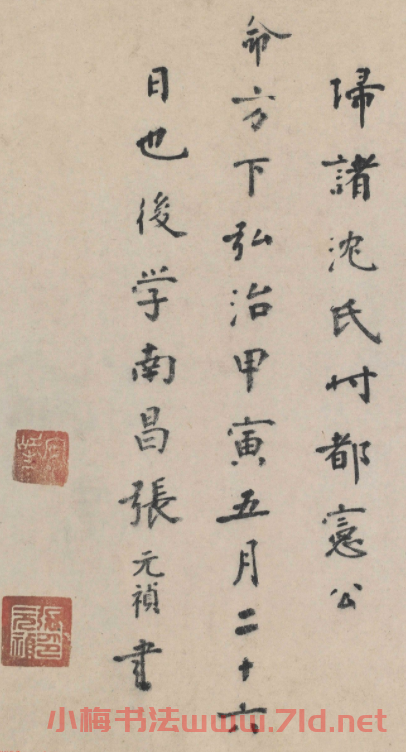 歸諸沈氏时都憲公
命方下弘治甲寅五月二十六
日也後学南昌張元禎書
小梅书法www.7ld.net